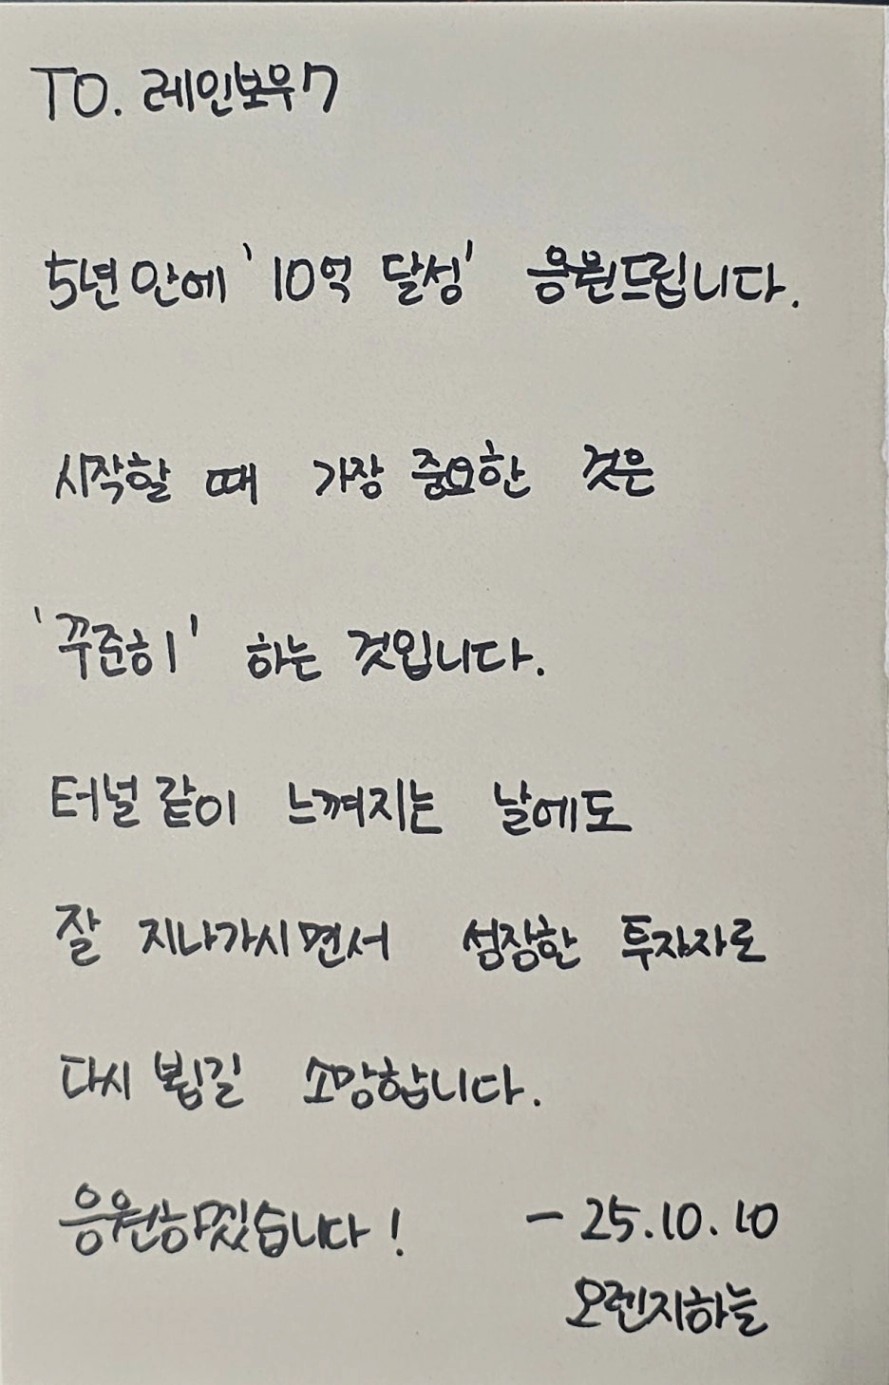 TO. 레인보우7
5년 안에 '10억 달성' 응원드립니다.
시작할 때 가장 중요한 것은
'꾸준히' 하는 것입니다.
터널 같이 느껴지는 날에도
잘 지나가시면서 성장한 투자자로
다시 뵙길 소망합니다.
응원하겠습니다! - 25.10.10
오렌지하늘